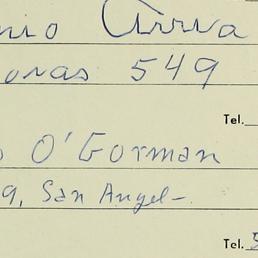 nio Arriva
oras 549
Tel.
o O'Gorman
9, San Angel-
Tel. 5